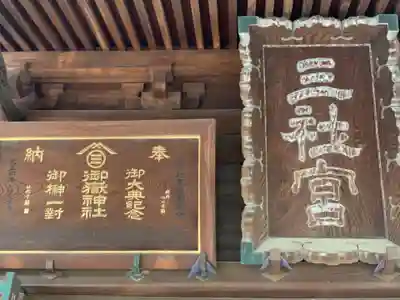 三社宮
奉
納
御大典記念
御嶽神社
御榊一對